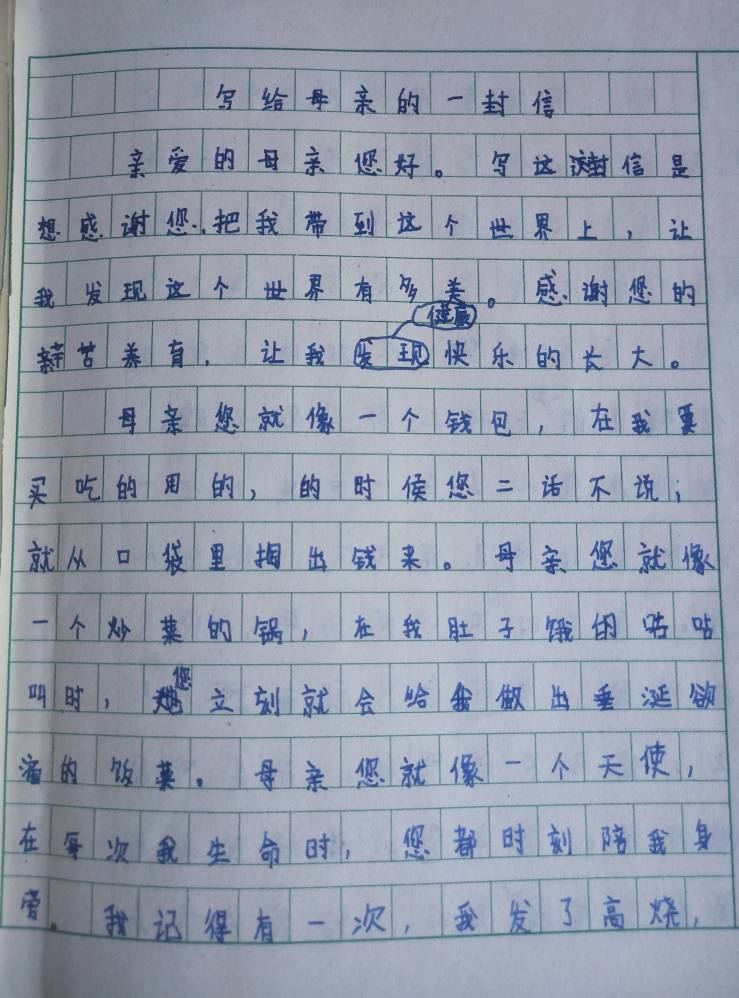 写给母亲的一封信
亲爱的母亲您好。写这封信是
想感谢您,把我带到这个世界上，让
我发现这个世界有多美。感谢您的
健康
辛苦养育，让我发现快乐的长大。
母亲您就像一个钱包，在我要
买吃的用的，的时候您二话不说，
就从口袋里掏出钱来。母亲您就像
一个炒菜的锅，在我肚子饿的咕咕
叫时，您立刻就会给我做出垂涎欲
滴的饭菜。母亲您就像一个天使，
在每次我生命时，您都时刻陪我身
旁。我记得有一次，我发了高烧，